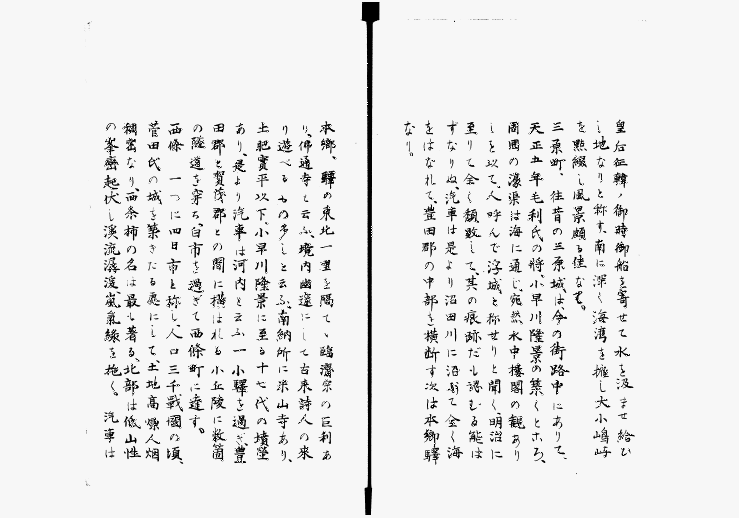 皇后征韓ノ御時御船を寄せて水を汲ませ給ひ
し地なりと称す、南に深く海湾を擁し大小嶋嶼
を點綴し風景頗る佳なり。
三原町、往昔の三原城は今の街路中にありて、
天正五年毛利氏の将、小早川隆景の築くところ、
周囲の濠渠は海に通じ、宛然水中樓閣の観あり
しを以て、人呼んで浮城と称せりと聞く、明治に
至りて全く頽敗して、其の痕跡だも認むる能は
すなりぬ、汽車は是より沼田川に沿ふて全く海
をはなれて、豊田郡の中部を横断す次は本郷驛
なり。
本郷、驛の東北一里を隔てゝ臨濟宗の巨刹あ
り、佛通寺と云ふ、境内幽邃にして古来詩人の来
り遊べるもの多しと云ふ、南納所に米山寺あり、
土肥實平以下小早川隆景に至る十七代の墳塋
あり、是より汽車は河内と云ふ一小驛を過ぎ、豊
田郡と賀茂郡との間に横はれる小丘陵に数箇
の隧道を穿ち、白市を過ぎて西條町に達す。
西條、一つに四日市と称し、人口三千戰國の頃、
菅田氏の城を築きたる處にして、土地高燥人烟
稠密なり、西条柿の名は最も著る、北部は低山性
の峯巒起伏し溪流潺湲、嵐氣緑を拖く。汽車は